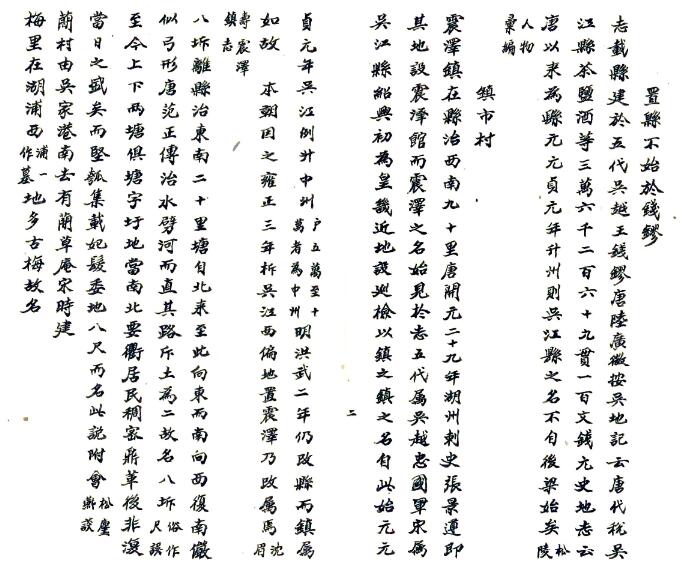 置縣不始於錢鏐
志載縣建於五代吳越王錢鏐唐陸廣微按吳地記云唐代稅吳
江縣茶鹽酒等三萬六千二百六十九貫一百文錢尢史地志云
唐以來為縣元元貞元年升州則吳江縣之名不自後梁始矣松陵
人物彙編
鎮市村
震澤鎮在縣治西南九十里唐開元二十九年湖州刺史張景遵即
其地設震澤館而震澤之名始見於志五代属吳越忠國軍宋属
吳江縣紹興初為皇畿近地設廵檢以鎮之鎮之名自此始元元
貞元年吳江例升中州戶五萬至十萬者為中州明洪武二年仍改縣而鎮属
如故 本朝因之雍正三年析吳江西偏地置震澤乃改属焉沈眉
壽震澤鎮志
八坼離縣治東南二十里塘自北来至此向東而南向西復南儼
似弓形唐范正傳治水劈河而直其路斥土為二故名八坼俗作尺誤
至今上下两塘俱塘字圩地當南北要衢居民稠宻鼎革後非復
當日之盛矣而堅瓠集載妃髮委地八尺而名此說附會松麈燕談
蘭村由吳家港南去有蘭草庵宋時建
梅里在湖浦西浦一作墓地多古梅故名
二